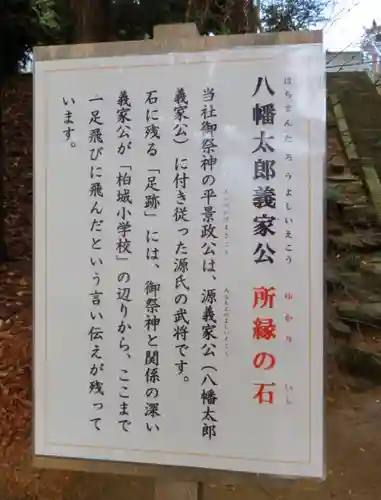 はちまんたろうよしいえこう　ゆかり　いし
八幡太郎義家公　所縁の石
当社御祭神の平景政公は、源義家公（八幡太郎
義家公）に付き従った源氏の武将です。
石に残る「足跡」には、御祭神と関係の深い
義家公が「柏城小学校」の辺りから、ここまで
一足飛びに飛んだという言い伝えが残って
います。